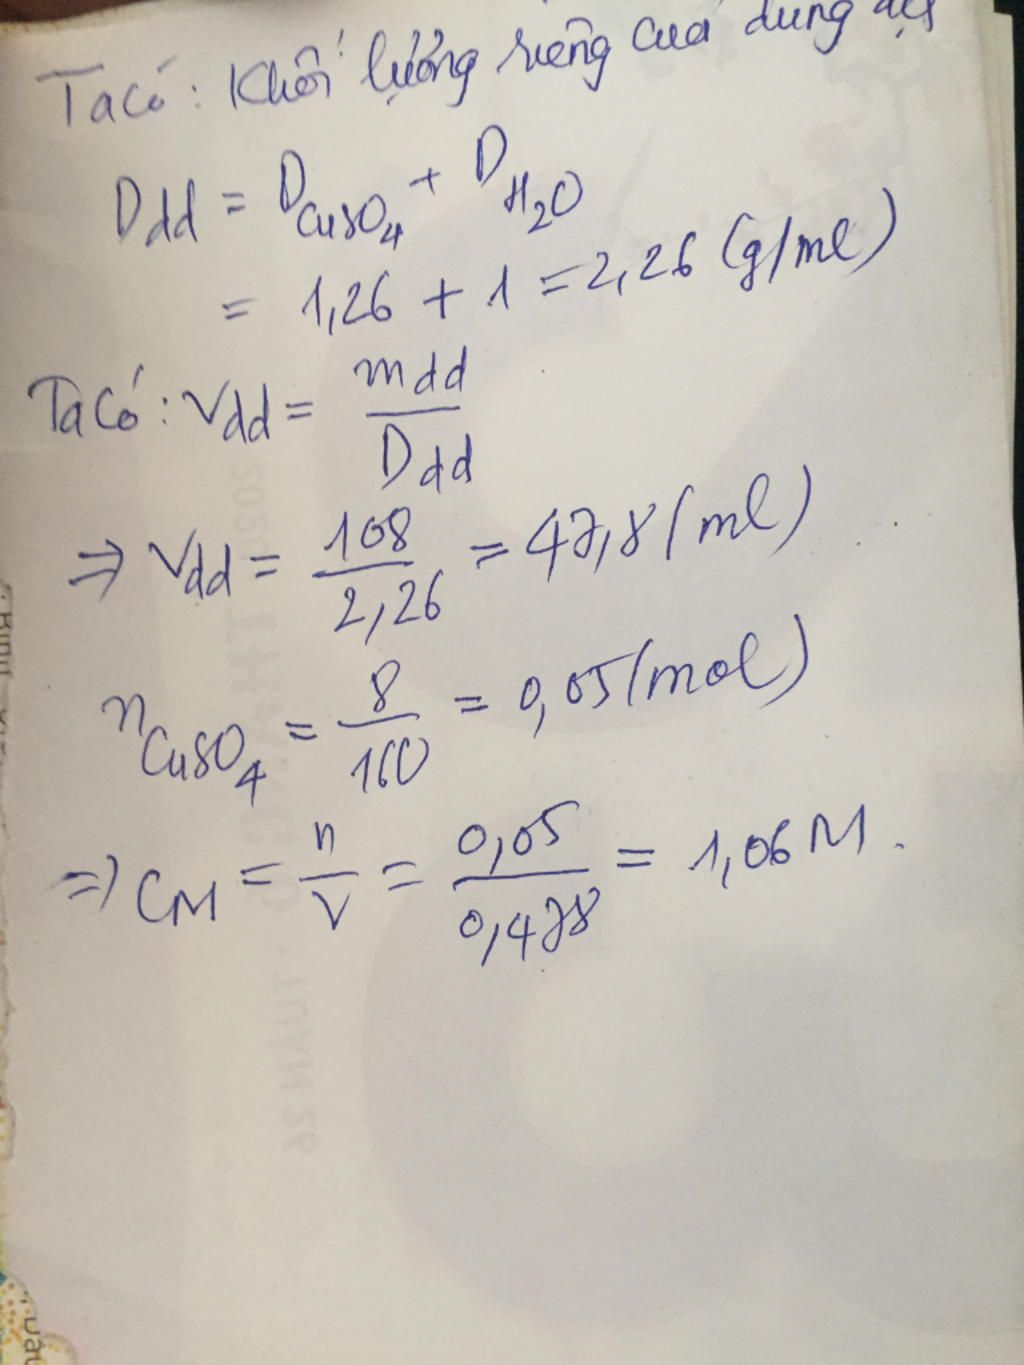 Ta có: Khối lượng riêng của dung dịch
Ddd = DCuSO4 + DH2O
= 1,26 + 1 = 2,26 (g/ml)
Ta có: Vdd = mdd / Ddd
=> Vdd = 108 / 2,26 = 47,8 (ml)
nCuSO4 = 8 / 160 = 0,05 (mol)
=> CM = n / V = 0,05 / 0,478 = 1,06 M.
TUẦN 26